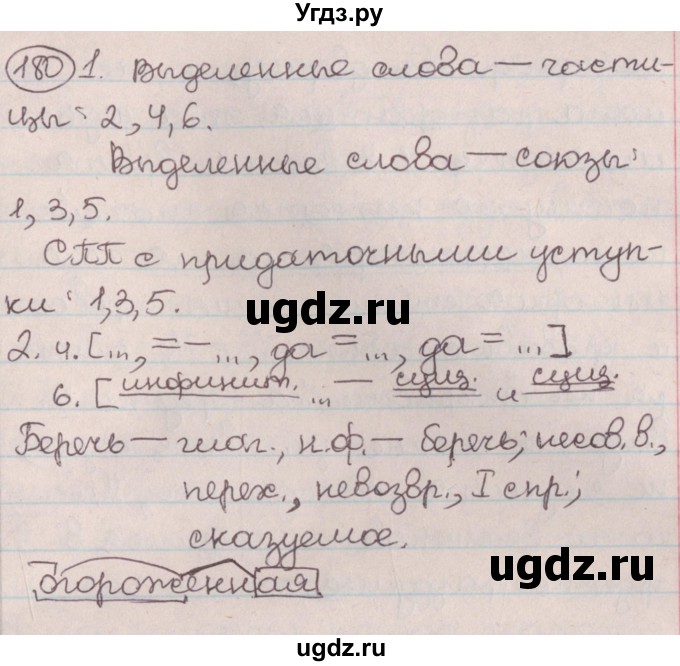 Угдз.ру
180 1. Выделенные слова — части-
цы: 2, 4, 6.
Выделенные слова — союзы:
1, 3, 5.
СПП с придаточными уступ-
ки: 1, 3, 5.
ugdz.ru
2. 4. […, = – …, да = …, да = …]
6. [инфинит. … — сущ. и сущ.
Беречь — глаг., н.ф. — беречь; несов. в.,
перех., невозвр., I спр.;
сказуемое.
ugdz.ru
огороженная
ugdz.ru